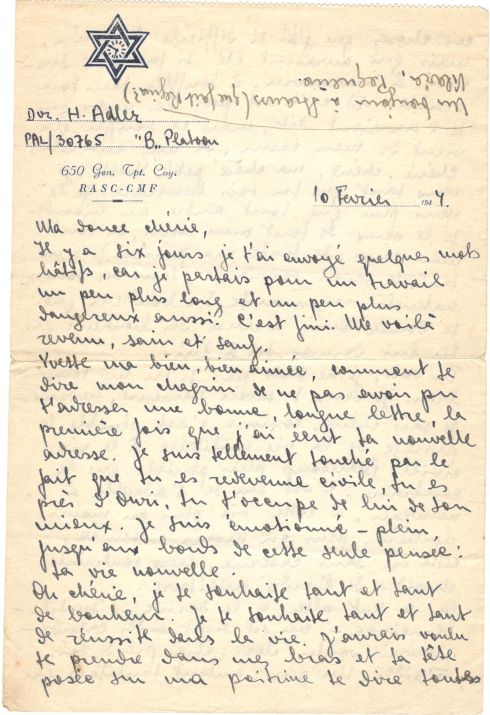 Dvr. H. Adler
PAL/30765 "B" Platoon
650 Gen. Tpt. Coy.
RASC-CMF
Un bonjour à (que fait Régine?)
10 Fevrier 1944.
Ma douce chérie,
Il y a six jours je t'ai envoyé quelques mots
hâtifs, car je partais pour un travail
un peu plus long et un peu plus
dangereux aussi. C'est fini. Me voilà
revenu, sain et sauf.
Yvette ma bien, bien aimée, comment te
dire mon chagrin de ne pas avoir pu
t'adresser une bonne, longue lettre, la
première fois que j'ai écrit ta nouvelle
adresse. Je suis tellement touché par le
fait que tu es redevenue civile, tu es
près d', tu t'occupe de lui de ton
mieux. Je suis émotionné - plein
jusqu'aux bords de cette seule pensée:
ta vie nouvelle.
Oh chérie, je te souhaite tant et tant
de bonheur. Je te souhaite tant et tant
de réussite dans la vie. J'aurais voulu
te prendre dans mes bras et ta tête
posée sur ma poitrine te dire toutes